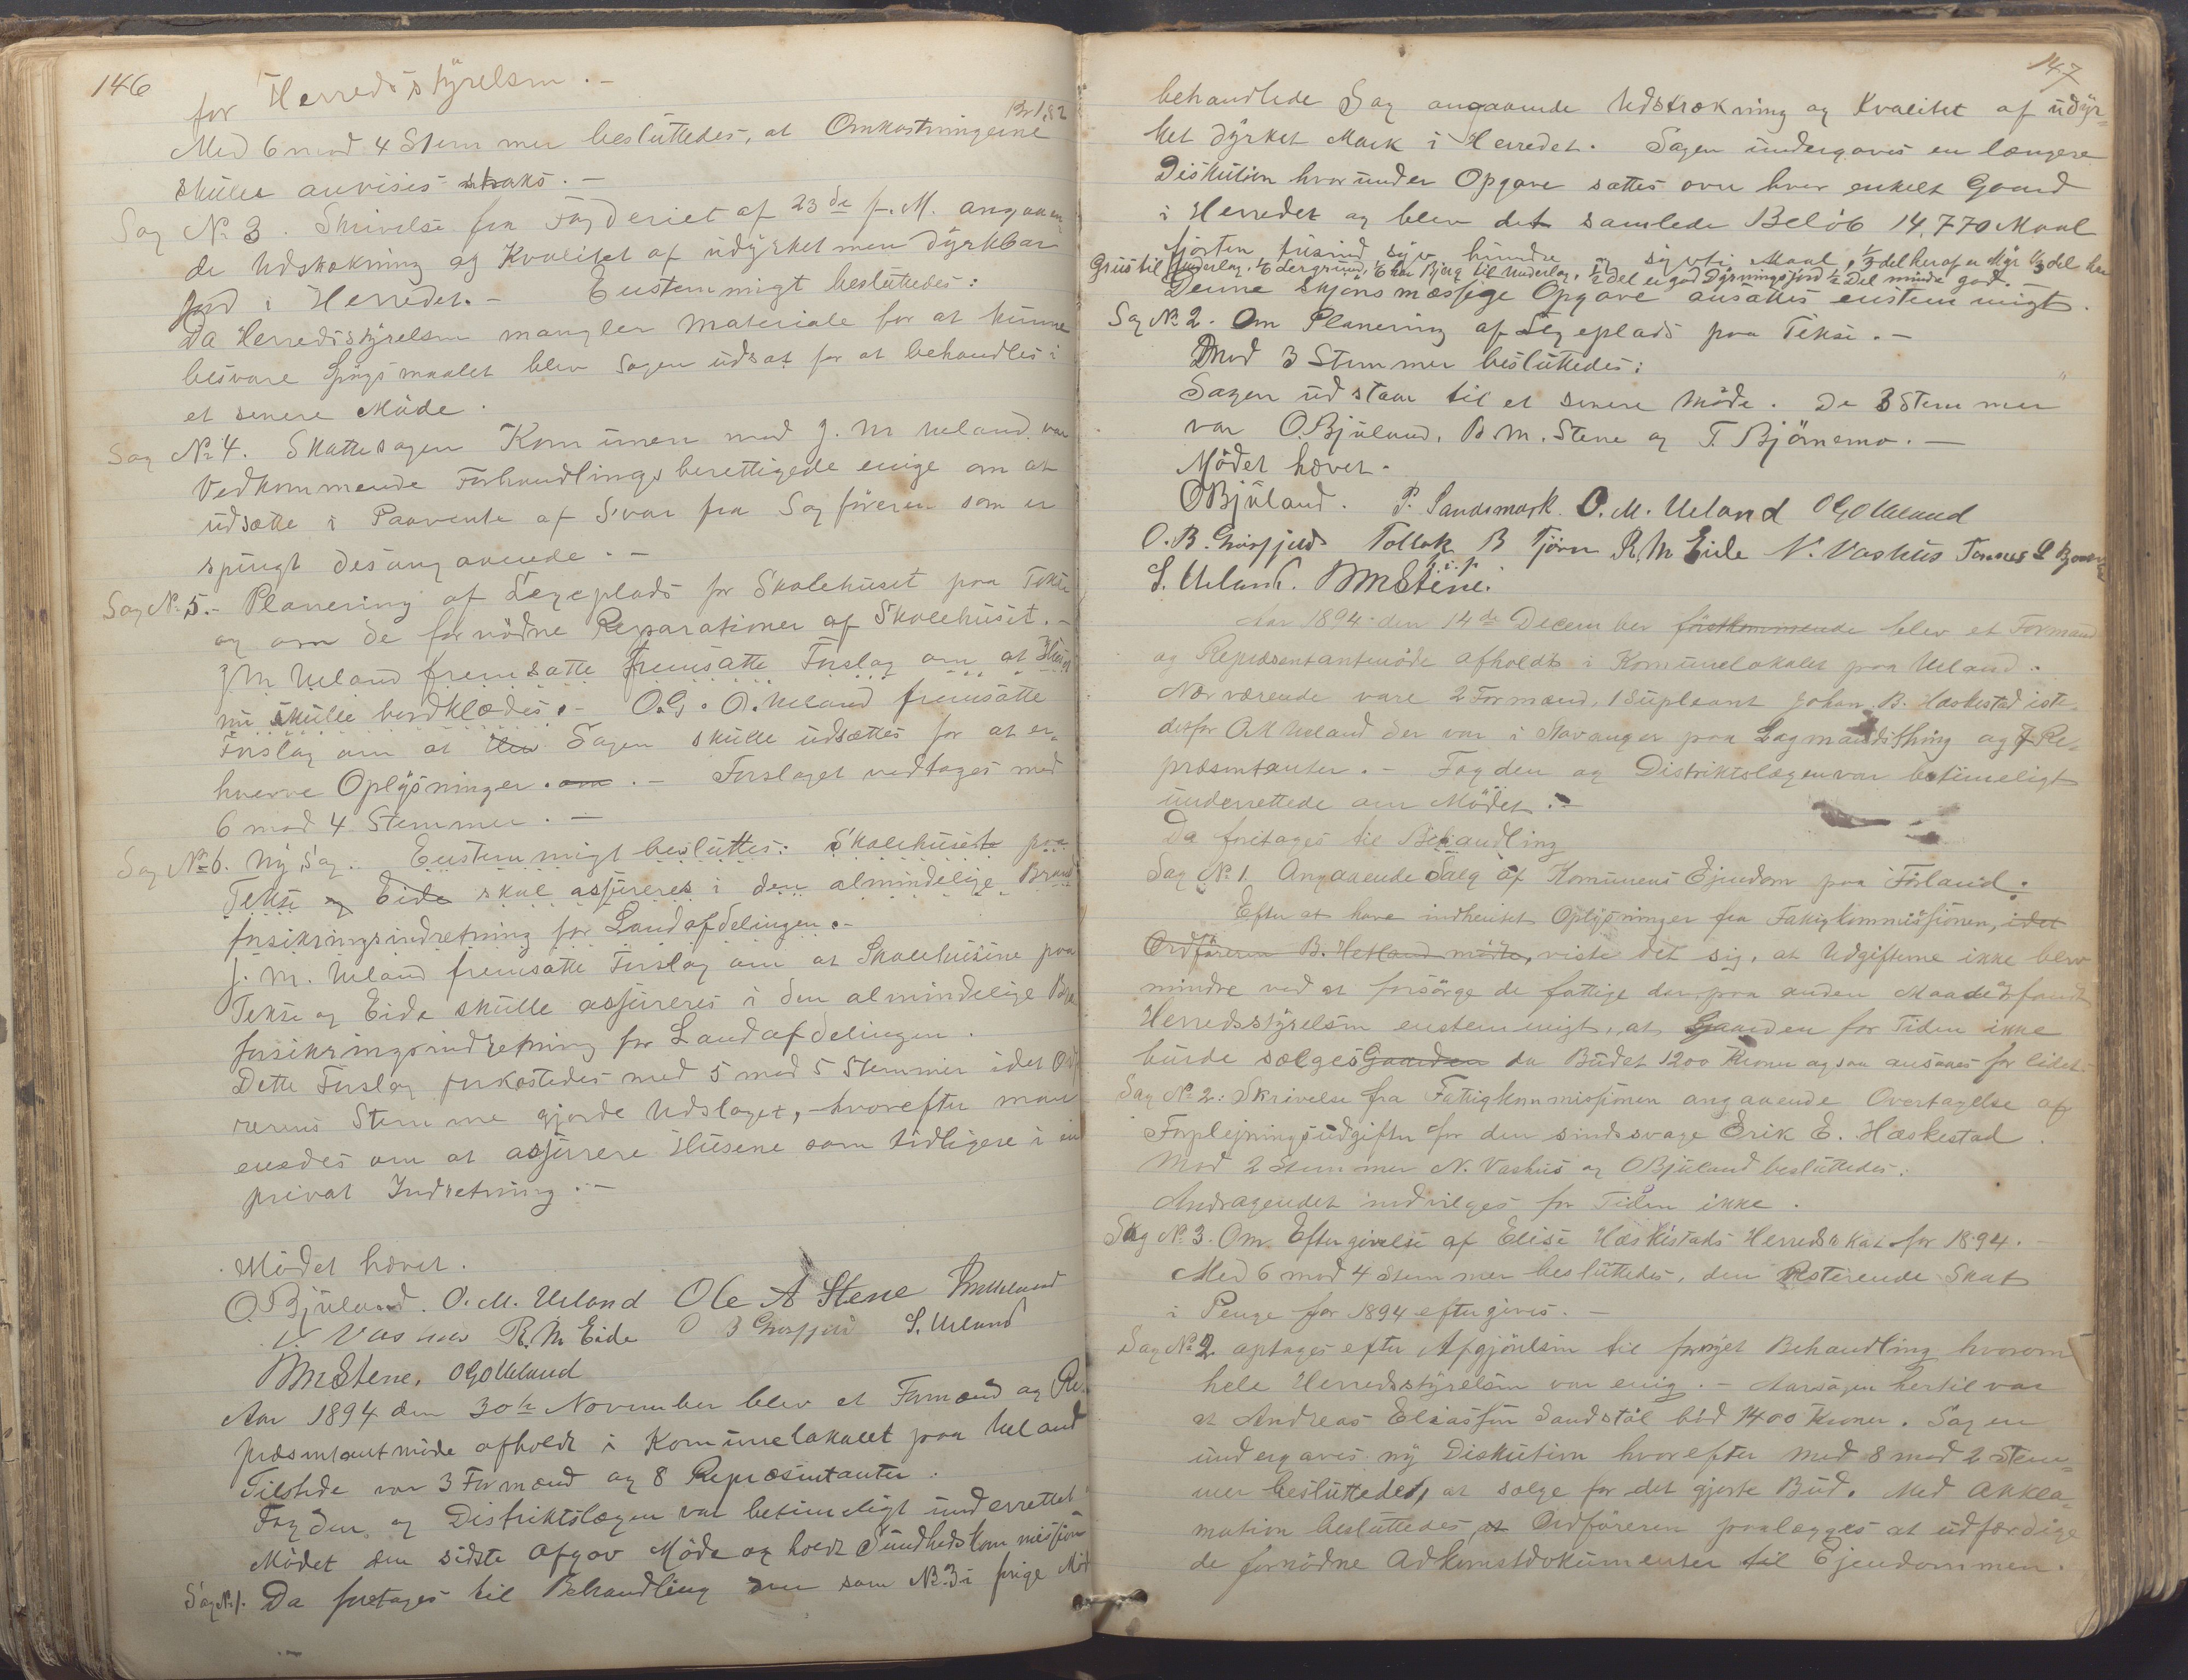 146
for Herredsstyrelsen. -
Br 1,82
Med 6 mod 4 Stemmer besluttedes, at Omkostningerne
skulle anvises straks. -
Sag No 3. Skrivelse fra Fogderiet af 23de f. M. angaaen-
de Udstrækning og Kvalitet af udyrket men dyrkbar
Jord i Herredet. - Enstemmigt besluttedes:
Da Herredsstyrelsen mangler Materiale for at kunne
besvare Spørgsmaalet blev Sagen udsat for at behandles i
et senere Møde.
Sag No 4. Skattesagen Komunen mod J. M. Ueland var
Vedkommende Forhandlingsberettigede enige om at
udsætte i Paavente af Svar fra Sagføreren som er
spurgt desangaaende. -
Sag No 5. - Planering af Legeplads for Skolehuset paa Tekse
og om de fornødne Reparationer af Skolehuset. -
J M Ueland fremsatte fremsatte Forslag om at Huset
nu skulle bordklædes. - O. G. O. Ueland fremsatte
Forslag om at Sagen skulle udsættes for at er-
hverve Oplysninger. om. - Forslaget vedtoges med
6 mod 4 Stemmer. -
Sag No 6. Ny Sag. Enstemmigt besluttes: Skolehuset paa
Tekse og Eide skal assureres i den almindelige Brand
forsikringsindretning for Landafdelingen. -
J. M. Ueland fremsatte Forslag om at Skolehusene paa
Tekse og Eide skulle assureres i den almindelige
forsikringsindretning for Landafdelingen.
Dette Forslag forkastedes med 5 mod 5 Stemmer idet Ordf
rerens Stemme gjorde Udslaget, hvorefter man
enedes om at assurere Husene som tidligere i en
privat Indretning. -
Mødet hævet.
O. Bjuland. O. M. Ueland Ole A Stene
N. Vashus R. M. Eide O B S. Ueland
BMStene, OGOUeland
Aar 1894 den 30te November blev et Formænd og Re-
præsentantmøde afholdt i Komunelokalet paa Ueland
Tilstede var 3 Formænd og 8 Repræsentanter.
Fogden og Distriktslægen var betimeligt underrettet
Mødet den sidste afgav Møde og holdt Sundhedskommission
Sag No 1. Da foretoges til Behandling den som No 3 i forige Mød
147
behandlede Sag angaaende Udstrækning og Kvalitet af udyr-
ket dyrket Mark i Herredet. Sagen undergaves en længere
Diskution hvorunder Opgave sattes over hver enkelt Gaard
i Herredet og blev det samlede Beløb 14,770 Maal
fjorten tusind syv hundre og sytti Maal, 1/3 del heraf er Myr 1/3 del har
Grus til Underlag, 1/6 dergrund, 1/6 har Bjerg til Underlag, 1/2 del er god Dyrningsjord 1/2 Del mindre god. -
Denne skjønsmæssige Opgave ansattes enstemmigt.
Sag No 2. Om Planering af Legeplads paa Tekse. -
Mod 3 Stemmer besluttedes:
Sagen udstaar til et senere Møde. De 3 Stemmer
var O. Bjuland, B. M. Stene og T. Bjørnemo. -
Mødet hævet.
OBjuland. P. Sandsmark. O. M. Ueland OGOUeland
O. B. Tollak B Tjørn R. M Eide N. Vashus
S. Ueland. BMStene.
Aar 1894 den 14de December førstkommende blev et Formand
og Repræsentantmøde afholdt i Komunelokalet paa Ueland.
Nærværende vare 2 Formænd, 1 Supleant Johan B. Hæskestad iste-
detfor O. M Ueland der var i Stavanger paa Lagmandsthing og 7 Re-
præsentanter. - Fogden og Distriktslægen var betimeligt
underrettede om Mødet. -
Da foretages til Behandling
Sag No 1. Angaaende Salg af Komunens Ejendom paa Førland.
Efter at have indhentet Oplysninger fra Fatigkommissionen, idet
Ordføreren B. Hetland mødte, viste det sig, at Udgifterne ikke blev
mindre ved at forsørge de fattige der paa anden Maade fandt
Herredsstyrelsen enstemmigt, at Gaarden for Tiden ikke
burde sælges Gaarden da Budet 1200 Kroner ogsaa ansaaes for lidet.
Sag No 2: Skrivelse fra Fattigkommissionen angaaende Overtagelse af
Forplejningsudgifter for den sindssvage Erik E. Hæskestad.
Mod 2 Stemmer N. Vashus og OBjuland besluttedes:
Andragendet indvilges for Tiden ikke.
Sag No 3. Om Eftergivelse af Elise Hæskestads Herredskat for 1894. -
Med 6 mod 4 Stemmer besluttedes, den resterende Skat
i Penge for 1894 eftergives. -
Sag No 2 optoges efter Afgjørelsen til fornyet Behandling hvorom
hele Herredsstyrelsen var enig. - Aarsagen hertil var
at Andreas Eliassøn Sandstøl bød 1400 Kroner. Sagen
undergaves ny Diskution hvorefter med 8 mod 2 Stem-
mer besluttedes, at sælge for det gjorte Bud. Med Akkla-
mation besluttedes at Ordføreren paalægges at udfærdige
de fornødne Adkomstdokumenter til Ejendommen.